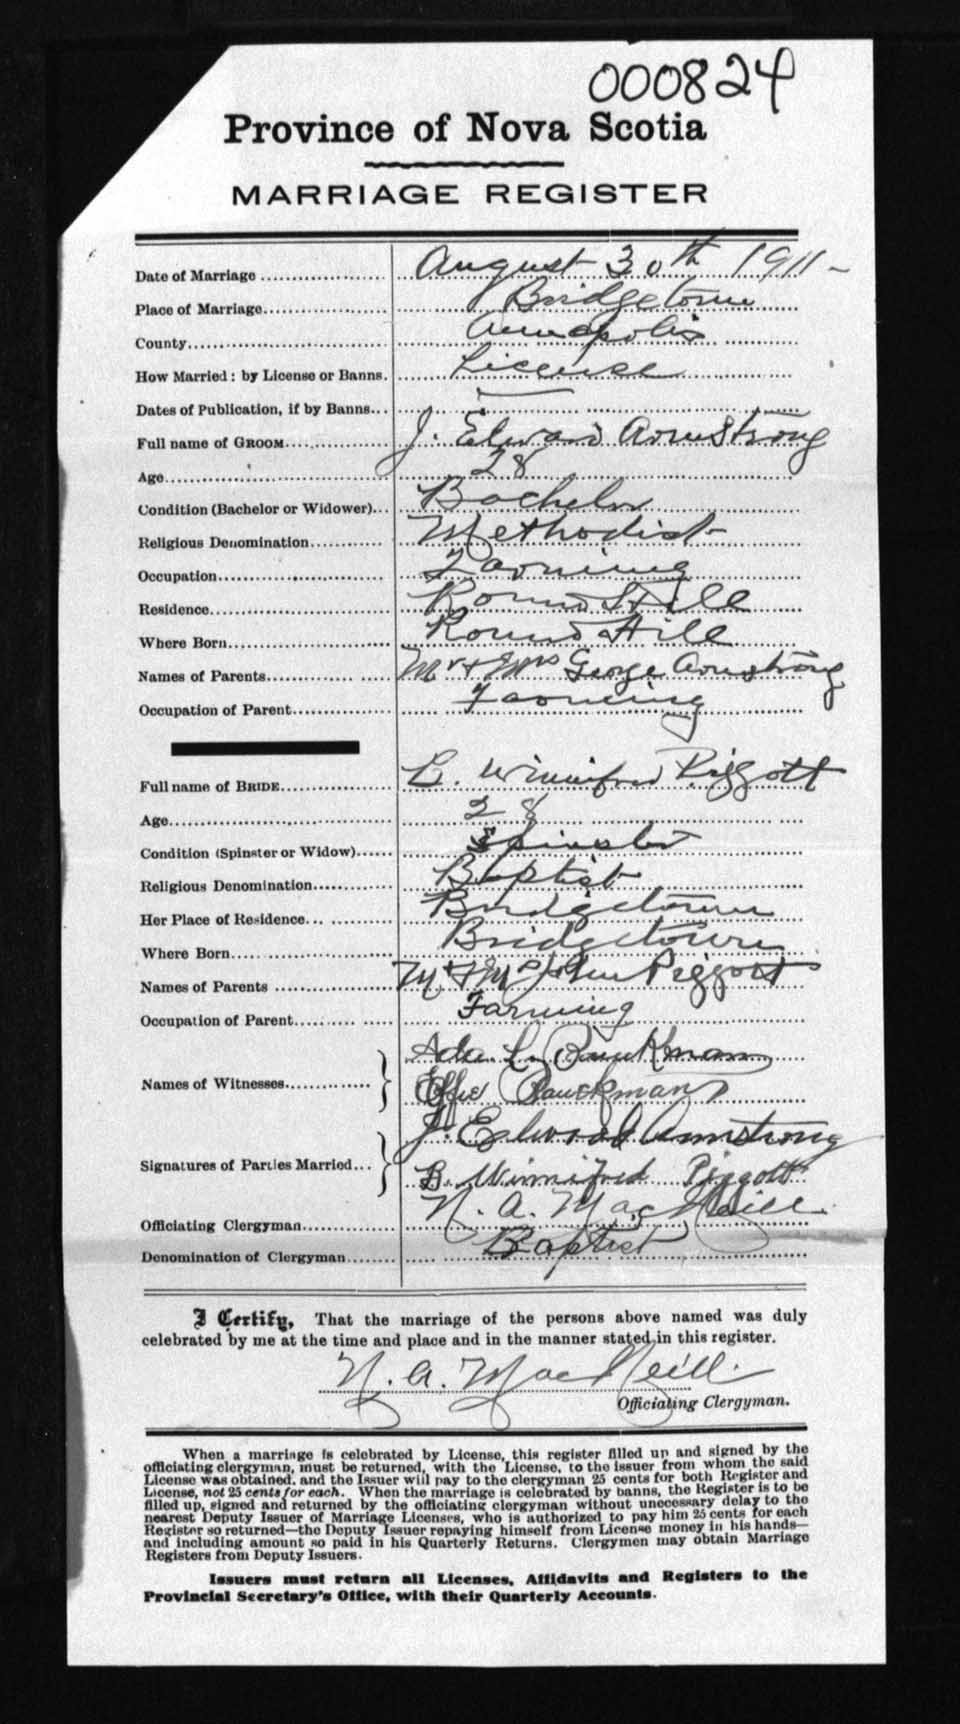 000824
Province of Nova Scotia
MARRIAGE REGISTER
Date of Marriage August 30th 1911-
Place of Marriage Bridgetown
County Annapolis
How Married: by License or Banns. License
Dates of Publication, if by Banns...
Full name of GROOM J. Elwood Armstrong
Age 28
Condition (Bachelor or Widower) Bachelor
Religious Denomination Methodist
Occupation Farming
Residence Round Hill
Where Born Round Hill
Names of Parents Mr & Mrs George Armstrong
Occupation of Parent Farming
Full name of BRIDE Winnifred Piggott
Age 28
Condition (Spinster or Widow) Spinster
Religious Denomination Baptist
Her Place of Residence Bridgetown
Where Born Bridgetown
Names of Parents Mr & Mrs John Piggott
Occupation of Parent Farming
Names of Witnesses Ada L.
Effie
Signatures of Parties Married J. Elwood Armstrong
B. Winnifred Piggott
Officiating Clergyman N. A. MacNeill
Denomination of Clergyman Baptist
I Certify, That the marriage of the persons above named was duly
celebrated by me at the time and place and in the manner stated in this register.
N. A. MacNeill
Officiating Clergyman.
When a marriage is celebrated by License, this register filled up and signed by the
officiating clergyman, must be returned, with the License, to the issuer from whom the said
License was obtained, and the Issuer will pay to the clergyman 25 cents for both Register and
License, not 25 cents for each. When the marriage is celebrated by banns, the Register is to be
filled up, signed and returned by the officiating clergyman without unnecessary delay to the
nearest Deputy Issuer of Marriage Licenses, who is authorized to pay him 25 cents for each
Register so returned—the Deputy Issuer repaying himself from License money in his hands—
and including amount so paid in his Quarterly Returns. Clergymen may obtain Marriage
Registers from Deputy Issuers.
Issuers must return all Licenses, Affidavits and Registers to the
Provincial Secretary's Office, with their Quarterly Accounts.